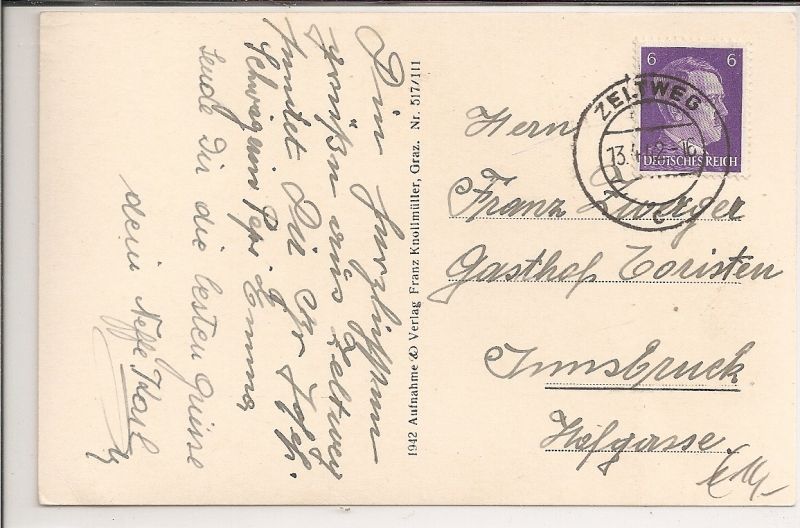 Die herzlichsten
Grüße aus Zeltweg
sendet Dir Ihr
Schwägerin Pepi. Emma
sende Dir die besten Grüsse
dein Neffe Karl
1942 Aufnahme & Verlag Franz Knollmüller, Graz. Nr. 517/111
6 6
ZELTWEG
DEUTSCHES REICH
Herrn
Franz Zwerger
Gasthof Toristen
Innsbruck
Hofgasse